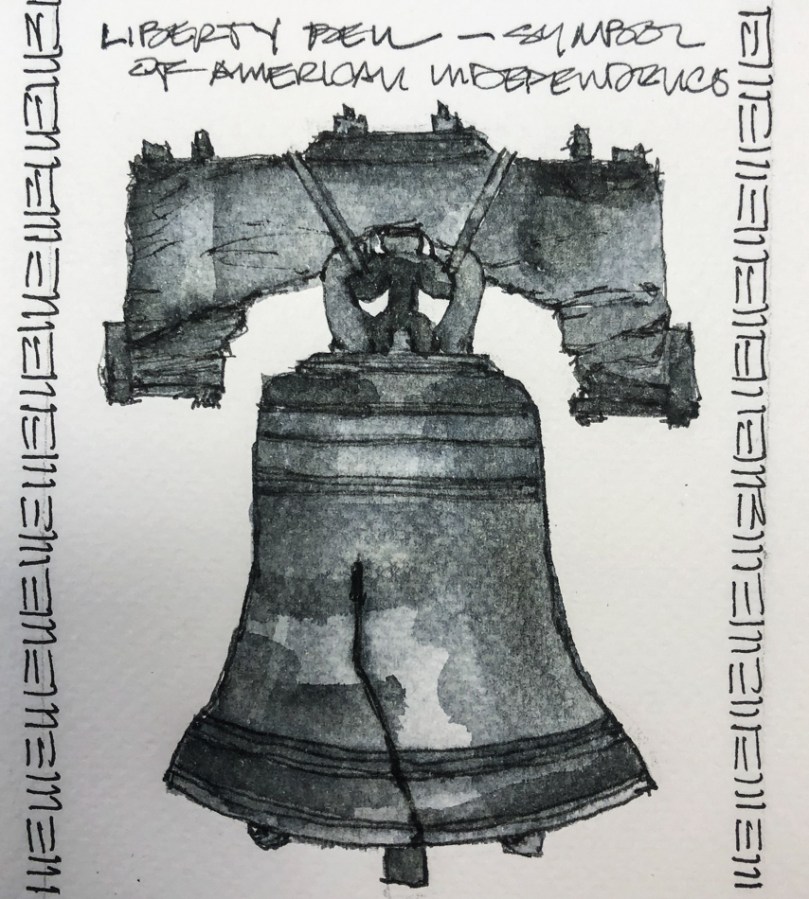 LIBERTY BELL — SYMBOL
OF AMERICAN INDEPENDENCE